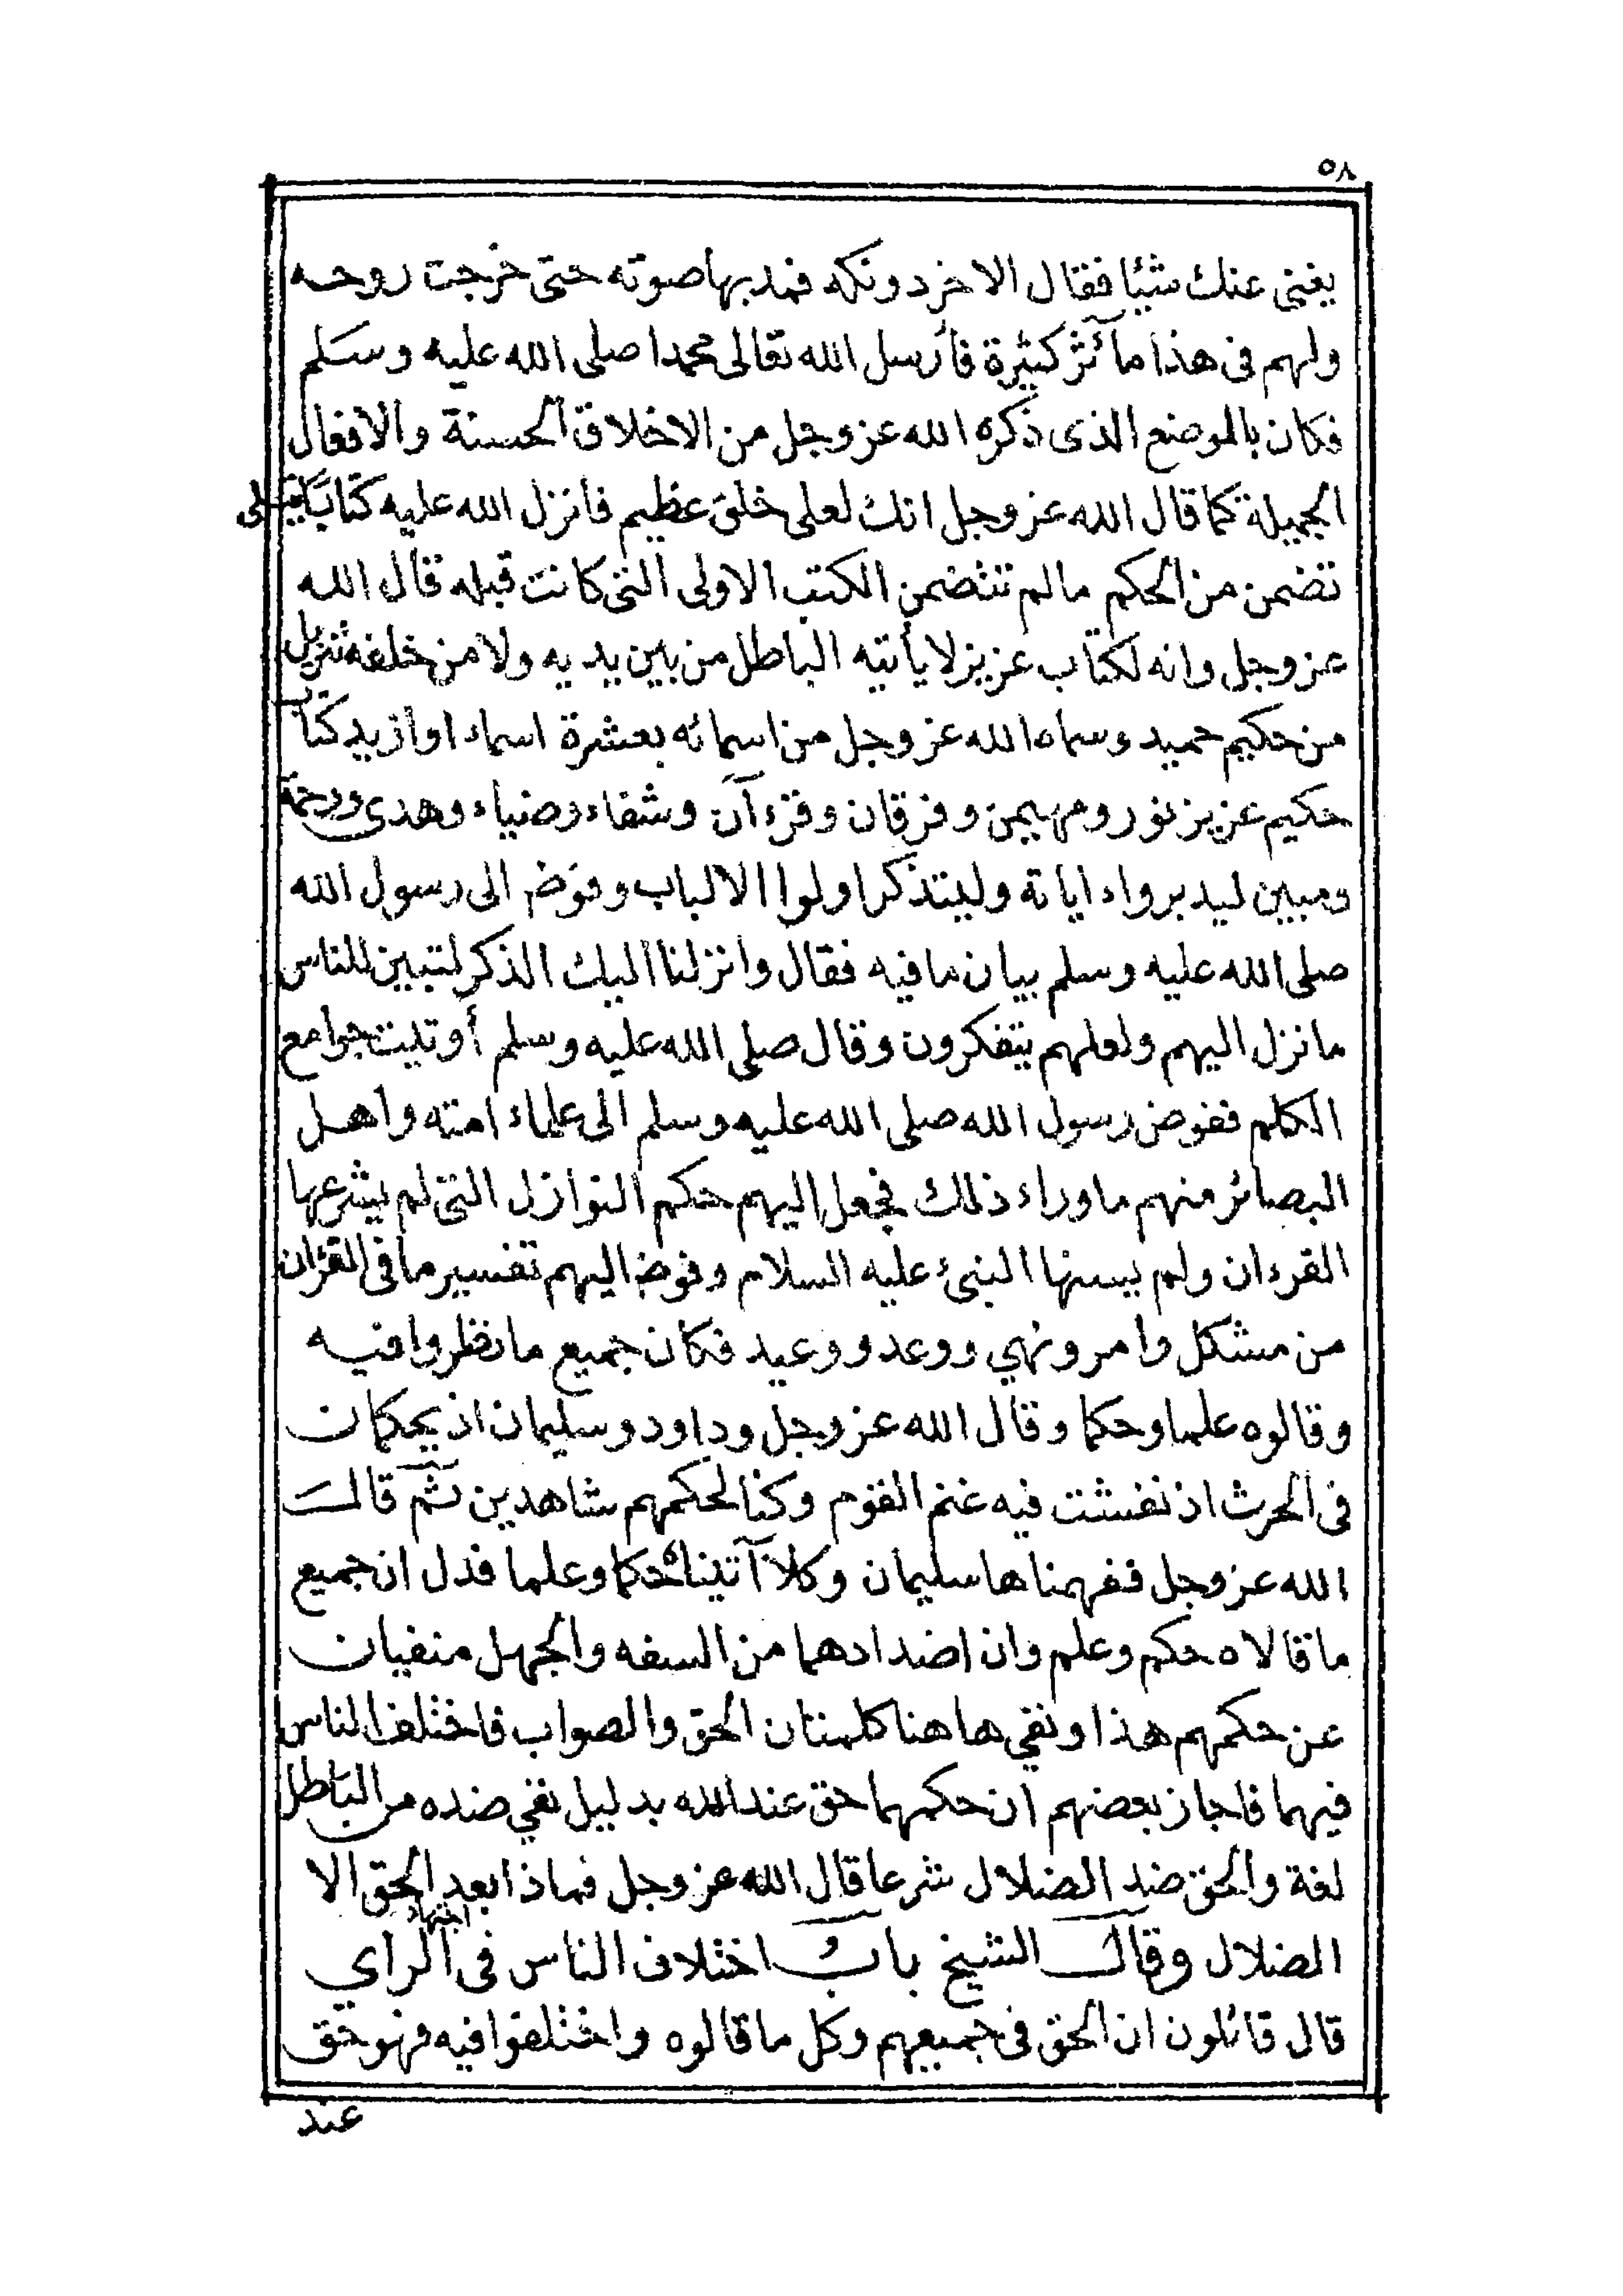 ٥٨
يغنى عنك شيئا فقال الاخر دونكه فمد بها صوته حتى خرجت روحه
ولهم فى هذا مآثر كثيرة فأرسل الله تعالى محمدا صلى الله عليه وسلم
فكان بالموضع الذى ذكره الله عز وجل من الاخلاق الحسنة والافعال
الجميلة كما قال الله عز وجل انك لعلى خلق عظيم فأنزل الله عليه كتابا
تضمن من الحكم مالم تتضمن الكتب الاولى التى كانت قبله قال الله
عز وجل وانه لكتاب عزيز لا يأتيه الباطل من بين يديه ولا من خلفه تنزيل
من حكيم حميد وسماه الله عز وجل من اسمائه بعشرة اسماء او ازيد كتاب
حكيم عزيز نور ومهيمن وفرقان وقرءآن وشفاء وضياء وهدى ورحمة
ومبين ليدبرواء اياته وليتذكر اولوا الالباب وفوض الى رسول الله
صلى الله عليه وسلم بيان ما فيه فقال وانزلنا اليك الذكر لتبين للناس
ما نزل اليهم ولعلهم يتفكرون وقال صلى الله عليه وسلم أوتيت جوامع
الكلم ففوض رسول الله صلى الله عليه وسلم الى علماء امته واهل
البصائر منهم ما وراء ذلك فجعل اليهم حكم النوازل التى لم يشرعها
القرءان ولم يسنها النبىء عليه السلام وفوض اليهم تفسير ما فى القرءان
من مشكل وامر ونهي ووعد ووعيد فكان جميع ما نظروا فيه
وقالوه علما وحكما وقال الله عز وجل وداود وسليمان اذ يحكمان
فى الحرث اذ نفشت فيه غنم القوم وكنا لحكمهم شاهدين ثم قال
الله عز وجل ففهمناها سليمان وكلا آتيناه حكما وعلما فدل ان جميع
ما قالاه حكم وعلم وان اضدادهما من السفه والجهل منفيان
عن حكمهم هذا ونفي هاهنا كلمتان الحق والصواب فاختلف الناس
فيهما فاجاز بعضهم ان حكمهما حق عند الله بدليل نفي ضده من الباطل
لغة والحق ضد الضلال شرعا قال الله عز وجل فماذا بعد الحق الا
الضلال وقال الشيخ باب اختلاف الناس فى اجتهاد الرأي
قال قائلون ان الحق فى جميعهم وكل ما قالوه واختلفوا فيه فهو حق
عند